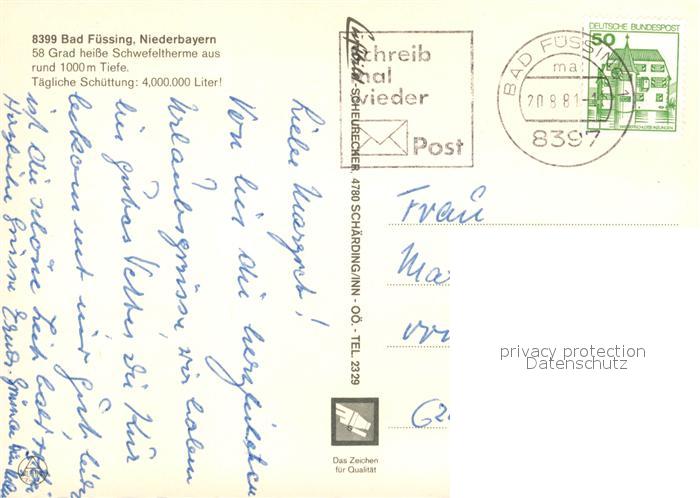 8399 Bad Füssing, Niederbayern
58 Grad heiße Schwefeltherme aus
rund 1000 m Tiefe.
Tägliche Schüttung: 4,000.000 Liter!
Luftbild-SCHEURECKER, 4780 SCHÄRDING/INN - OÖ. - TEL. 23 29
Schreib
mal
wieder
Post
BAD FÜSSING 1
ma
20.8.81
8397
DEUTSCHE BUNDESPOST
50
WASSERSCHLOSS INZLINGEN
Liebe Margret!
Von hier die herzlichsten
Urlaubsgrüsse, wir haben
hier gutes Wetter die Kur
bekommt mir gut leider
ist die schöne Zeit bald
Herzliche Grüsse
Frau
Ma
Das Zeichen
für Qualität
privacy protection
Datenschutz